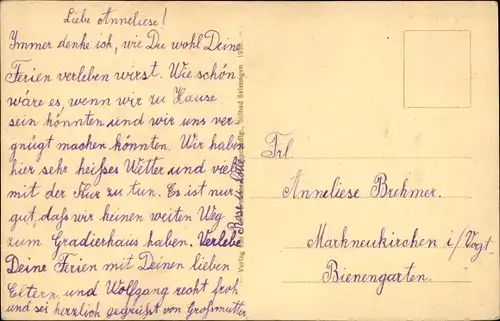 Liebe Anneliese!
Immer denke ich, wie Du wohl Deine
Ferien verleben wirst. Wie schön
wäre es, wenn wir zu Hause
sein könnten und wir uns ver-
gnügt machen könnten. Wir haben
hier sehr heißes Wetter und viel
mit der Kur zu tun. Es ist nur
gut, daß wir keinen weiten Weg
zum Gradierhaus haben. Verlebe
Deine Ferien mit Deinen lieben
Eltern und Wolfgang recht froh
und sei herzlich gegrüßt von Großmutter
Verlag
Bad Salzungen
Frl.
Anneliese Brehmer.
Markneukirchen i/Vogt-
Bienengarten.